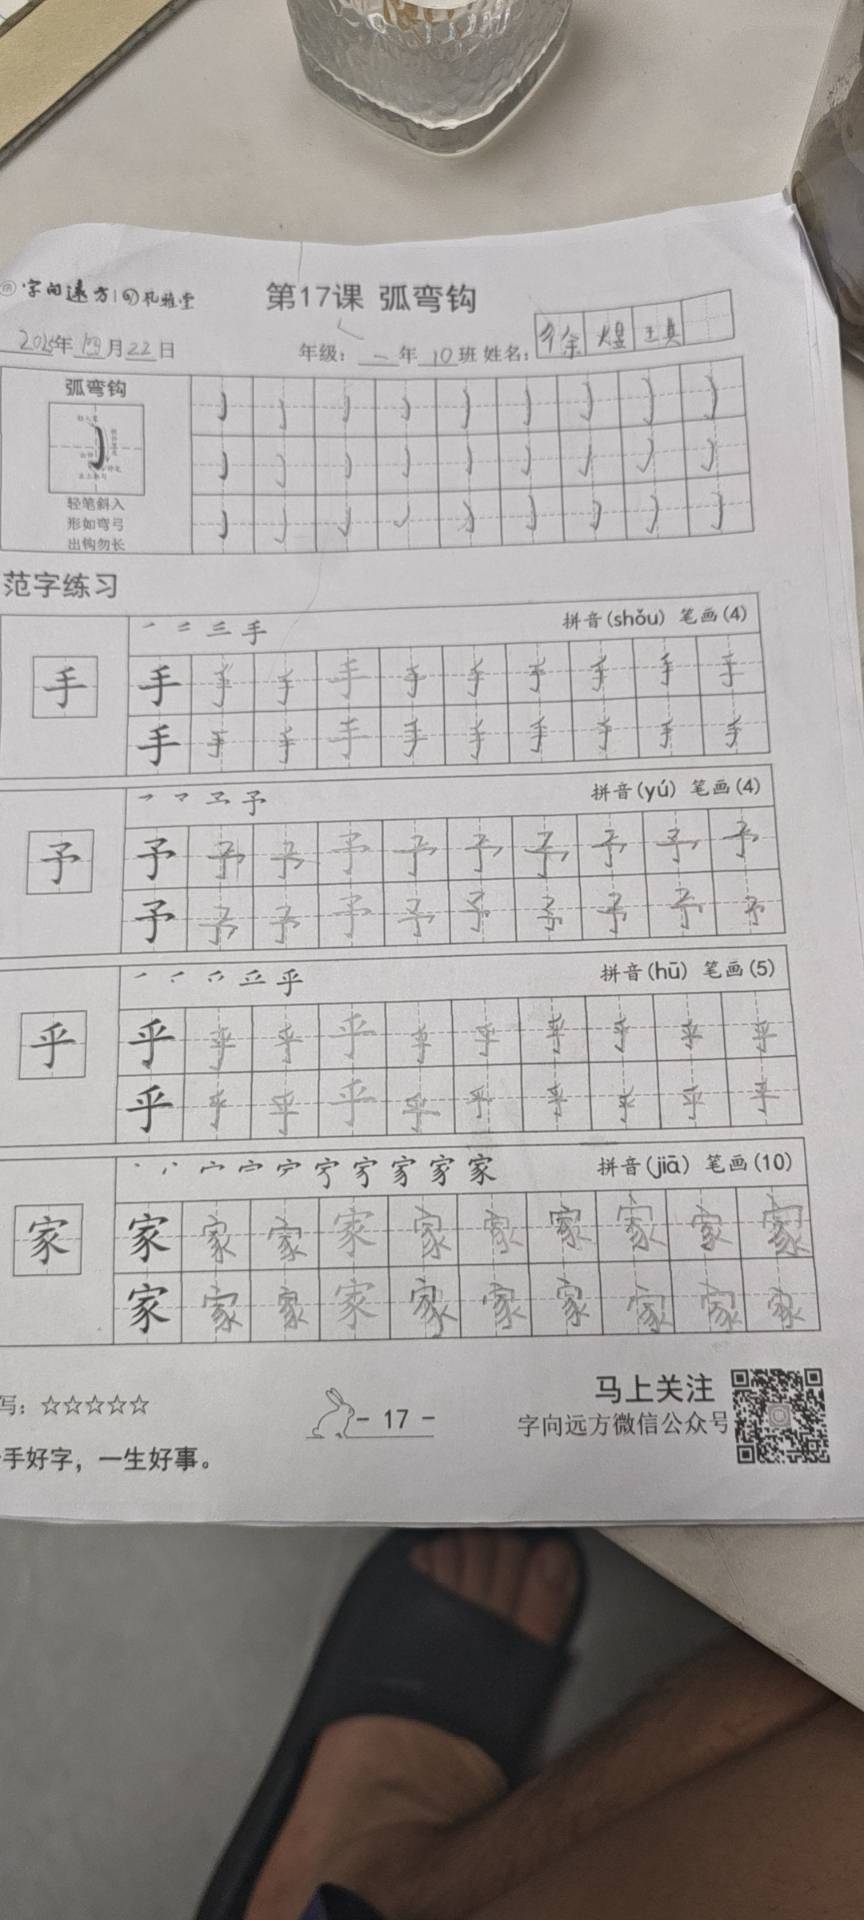 字向远方 礼雅堂
第17课 弧弯钩
2025年 月22日 年级：一年10班 姓名：徐煜
弧弯钩
轻笔斜入
形如弯弓
出钩勿长
范字练习
一 二 三 手 拼音(shǒu) 笔画(4)
手 手 手 手 手 手 手 手 手 手 手
手 手 手 手 手 手 手 手 手 手
予 拼音(yú) 笔画(4)
予 予 予 予 予 予 予 予 予 予 予
予 予 予 予 予 予 予 予 予 予
乎 拼音(hū) 笔画(5)
乎 乎 乎 乎 乎 乎 乎 乎 乎 乎 乎
乎 乎 乎 乎 乎 乎 乎 乎 乎 乎
家 拼音(jiā) 笔画(10)
家 家 家 家 家 家 家 家 家 家 家
家 家 家 家 家 家 家 家 家 家
写：☆☆☆☆☆
- 17 -
马上关注
字向远方微信公众号
手好字，一生好事。